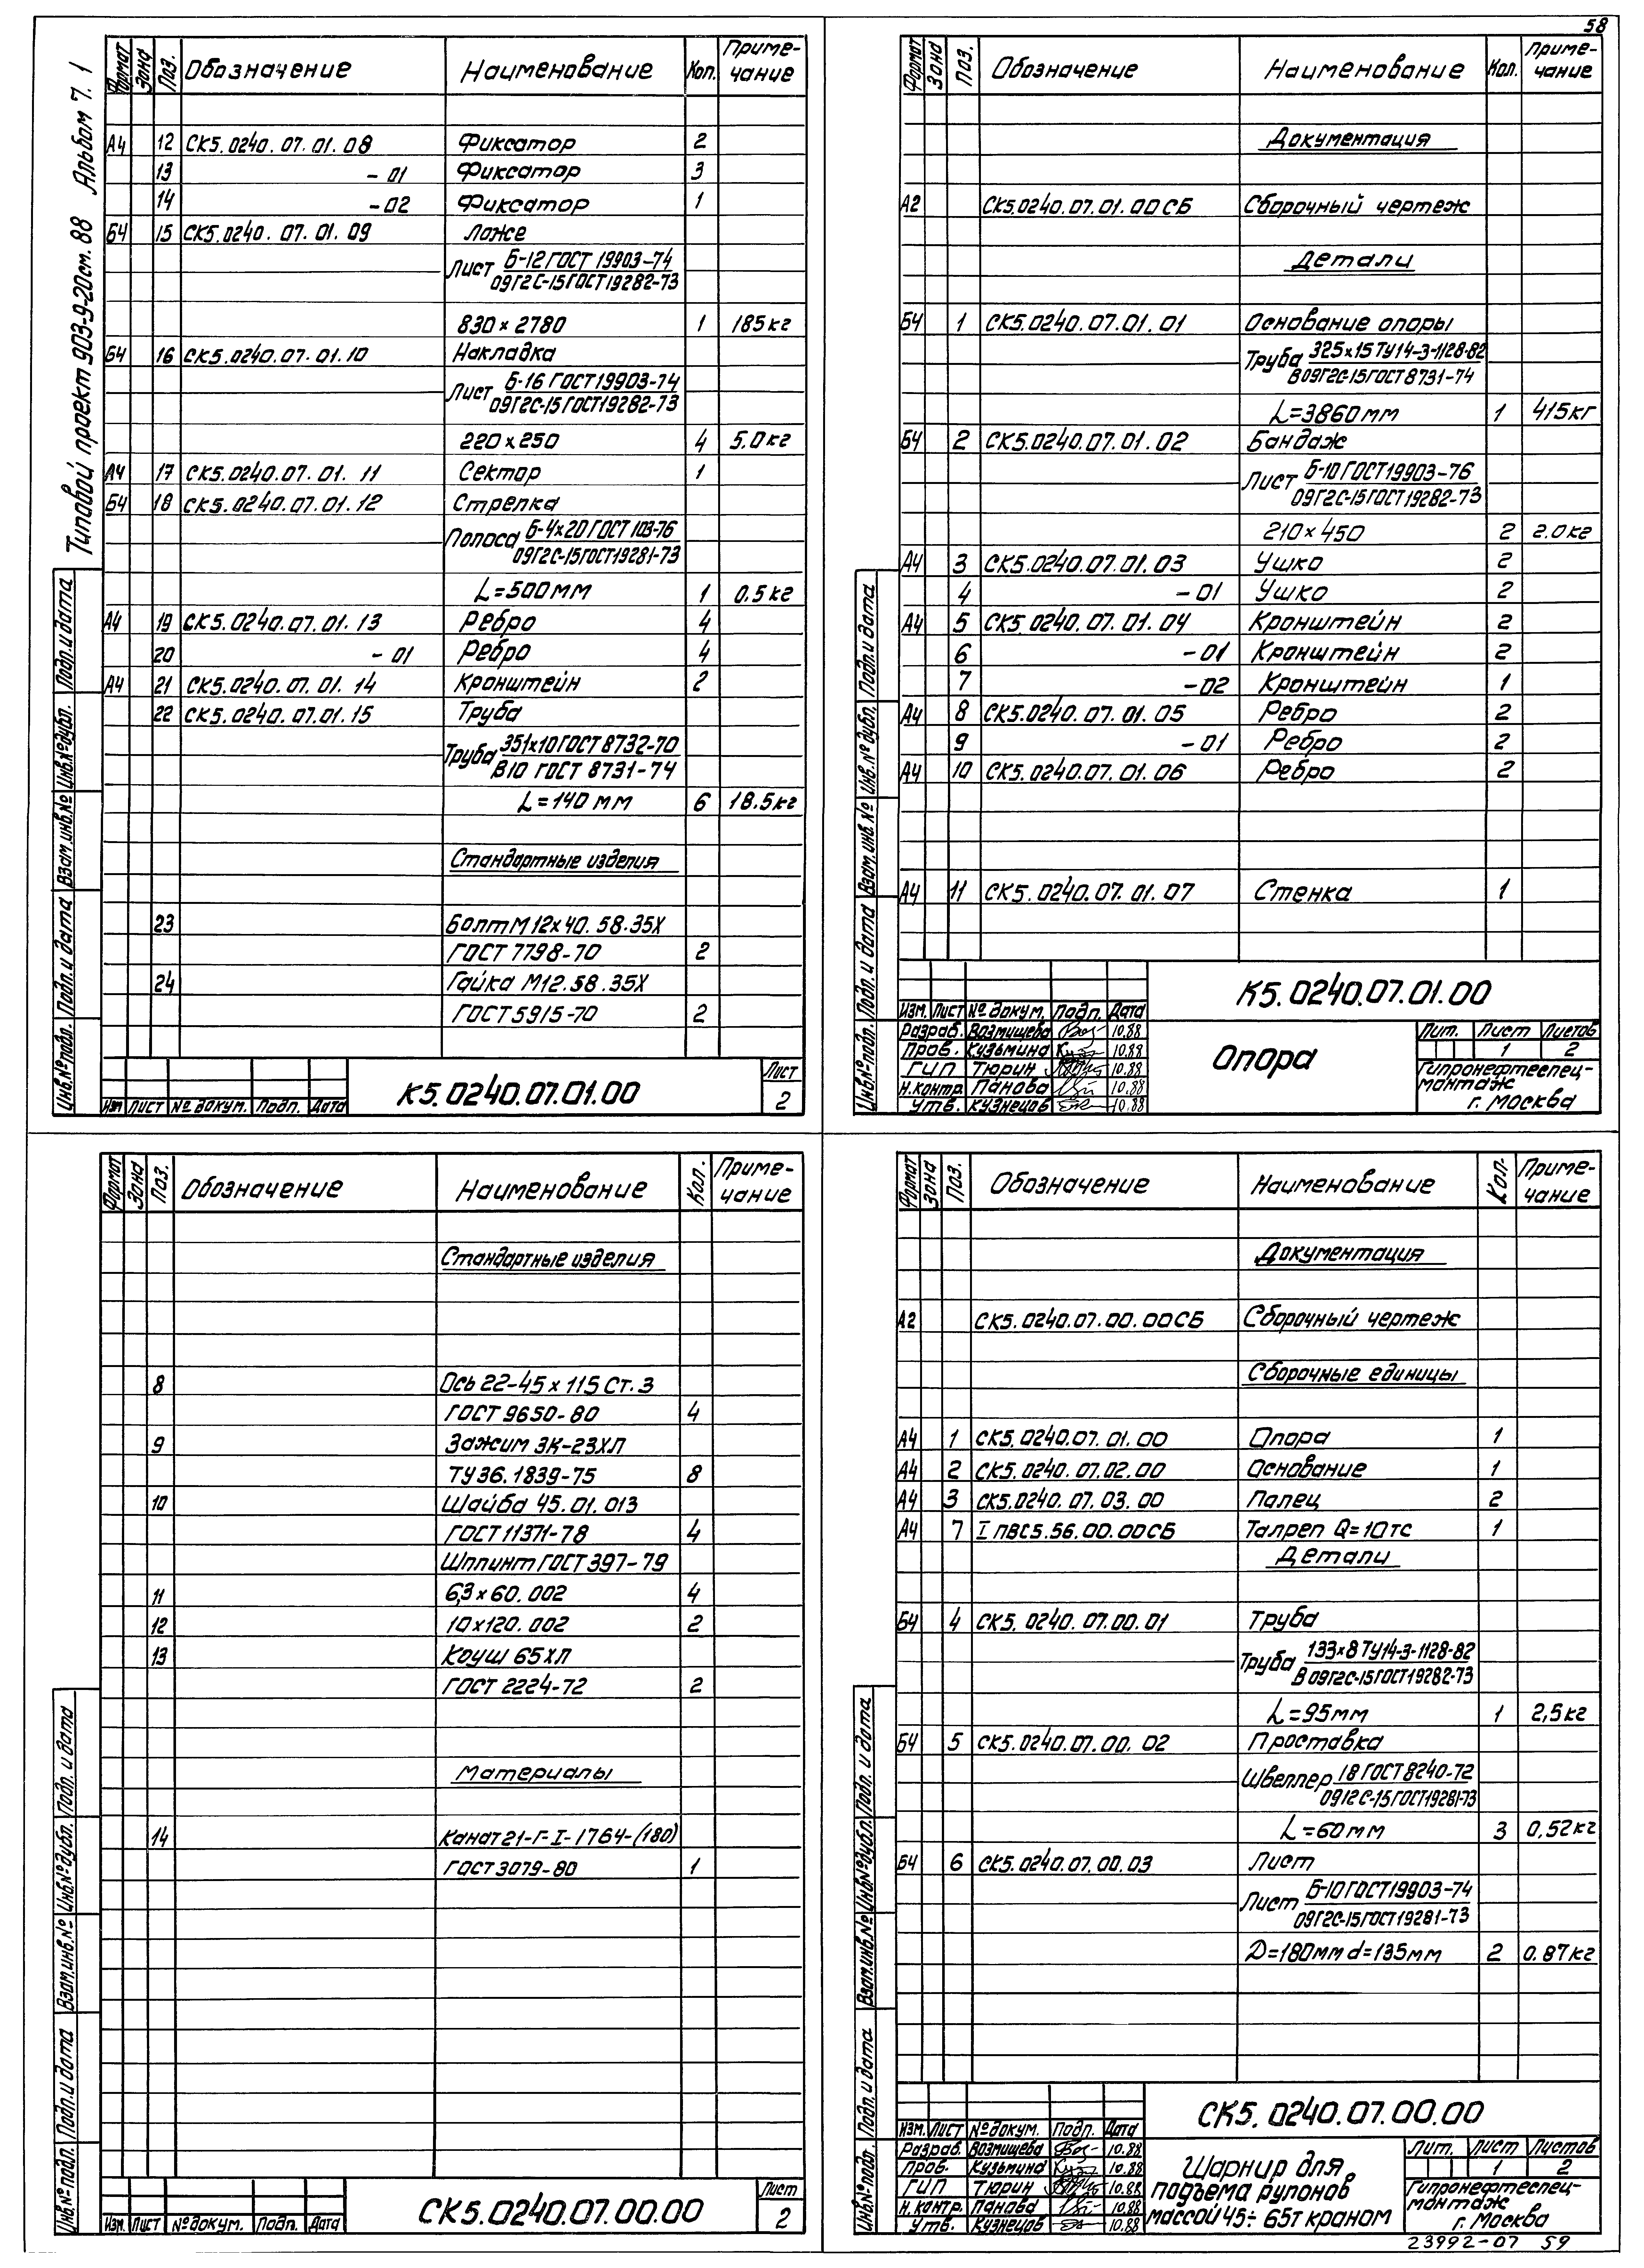 58
Типовой проект 903-9-20см. 88 Альбом 7. 1
Формат Зона Поз. Обозначение Наименование Кол. Приме-чание
А4 12 СК5.0240.07.01.08 Фиксатор 2
13 -01 Фиксатор 3
14 -02 Фиксатор 1
Б4 15 СК5.0240.07.01.09 Ложе
Лист Б-12 ГОСТ 19903-74
09Г2С-15 ГОСТ 19282-73
830×2780 1 185кг
Б4 16 СК5.0240.07.01.10 Накладка
Лист Б-16 ГОСТ 19903-74
09Г2С-15 ГОСТ 19282-73
220×250 4 5.0кг
А4 17 СК5.0240.07.01.11 Сектор 1
Б4 18 СК5.0240.07.01.12 Стрелка
Полоса Б-4×20 ГОСТ 103-76
09Г2С-15 ГОСТ 19281-73
L=500мм 1 0.5кг
А4 19 СК5.0240.07.01.13 Ребро 4
20 -01 Ребро 4
А4 21 СК5.0240.07.01.14 Кронштейн 2
22 СК5.0240.07.01.15 Труба
Труба 351×10 ГОСТ 8732-70
В10 ГОСТ 8731-74
L=140мм 6 18.5кг
Стандартные изделия
23 Болт М12×40.58.35Х
ГОСТ 7798-70 2
24 Гайка М12.58.35Х
ГОСТ 5915-70 2
Инв.№подл. Подп.и дата Взам.инв.№ Инв.№дубл. Подп.и дата
Изм Лист №докум. Подп. Дата
К5.0240.07.01.00
Лист
2
Формат Зона Поз. Обозначение Наименование Кол. Приме-чание
Документация
А2 СК5.0240.07.01.00СБ Сборочный чертеж
Детали
Б4 1 СК5.0240.07.01.01 Основание опоры
Труба 325×15 ТУ14-3-1128-82
В09Г2С-15 ГОСТ 8731-74
L=3860мм 1 415кг
Б4 2 СК5.0240.07.01.02 Бандаж
Лист Б-10 ГОСТ 19903-76
09Г2С-15 ГОСТ 19282-73
210×450 2 2.0кг
А4 3 СК5.0240.07.01.03 Ушко 2
4 -01 Ушко 2
А4 5 СК5.0240.07.01.04 Кронштейн 2
6 -01 Кронштейн 2
7 -02 Кронштейн 1
А4 8 СК5.0240.07.01.05 Ребро 2
9 -01 Ребро 2
А4 10 СК5.0240.07.01.06 Ребро 2
А4 11 СК5.0240.07.01.07 Стенка 1
Инв.№подл. Подп.и дата Взам.инв.№ Инв.№дубл. Подп.и дата
К5.0240.07.01.00
Изм. Лист №докум. Подп. Дата
Разраб. Возмищева 10.88
Пров. Кузьмина 10.88
ГИП Тюрин 10.88
Н.контр. Панова 10.88
Утв. Кузнецов 10.88
Опора
Лит. Лист Листов
1 2
Гипронефтеспец-
монтаж
г. Москва
Формат Зона Поз. Обозначение Наименование Кол. Приме-чание
Стандартные изделия
8 Ось 22-45×115 Ст.3
ГОСТ 9650-80 4
9 Зажим ЗК-23ХЛ
ТУ36.1839-75 8
10 Шайба 45.01.013
ГОСТ 11371-78 4
Шплинт ГОСТ 397-79
11 6,3×60.002 4
12 10×120.002 2
13 Коуш 65ХЛ
ГОСТ 2224-72 2
Материалы
14 Канат 21-Г-I-1764-(180)
ГОСТ 3079-80 1
Инв.№подл. Подп.и дата Взам.инв.№ Инв.№дубл. Подп. и дата
Изм. Лист №докум. Подп. Дата
СК5.0240.07.00.00
Лист
2
Формат Зона Поз. Обозначение Наименование Кол. Приме-чание
Документация
А2 СК5.0240.07.00.00СБ Сборочный чертеж
Сборочные единицы
А4 1 СК5.0240.07.01.00 Опора 1
А4 2 СК5.0240.07.02.00 Основание 1
А4 3 СК5.0240.07.03.00 Палец 2
А4 7 I ПВС5.56.00.00СБ Талреп Q=10тс 1
Детали
Б4 4 СК5.0240.07.00.01 Труба
Труба 133×8 ТУ14-3-1128-82
В 09Г2С-15 ГОСТ 19282-73
L=95мм 1 2,5кг
Б4 5 СК5.0240.07.00.02 Проставка
Швеллер 18 ГОСТ 8240-72
09Г2С-15 ГОСТ 19281-73
L=60мм 3 0,52кг
Б4 6 СК5.0240.07.00.03 Лист
Лист Б-10 ГОСТ 19903-74
09Г2С-15 ГОСТ 19281-73
D=180мм d=135мм 2 0.87кг
Инв.№подл. Подп.и дата Взам.инв.№ Инв.№дубл. Подп. и дата
СК5.0240.07.00.00
Изм. Лист №докум. Подп. Дата
Разраб. Возмищева 10.88
Пров. Кузьмина 10.88
ГИП Тюрин 10.88
Н.контр. Панова 10.88
Утв. Кузнецов 10.88
Шарнир для
подъема рулонов
массой 45÷65т краном
Лит. Лист Листов
1 2
Гипронефтеспец-
монтаж
г. Москва
23992-07 59